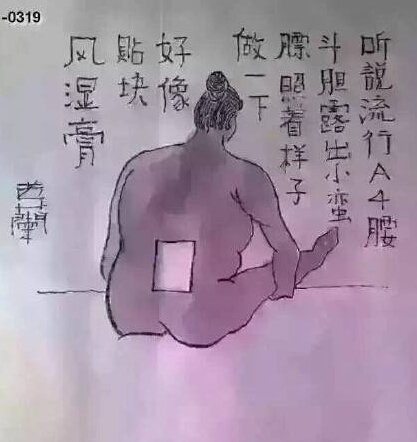 -0319
听説流行A4腰
斗胆露出小蛮
膘照着样子
做一下
好像
贴块
风湿膏